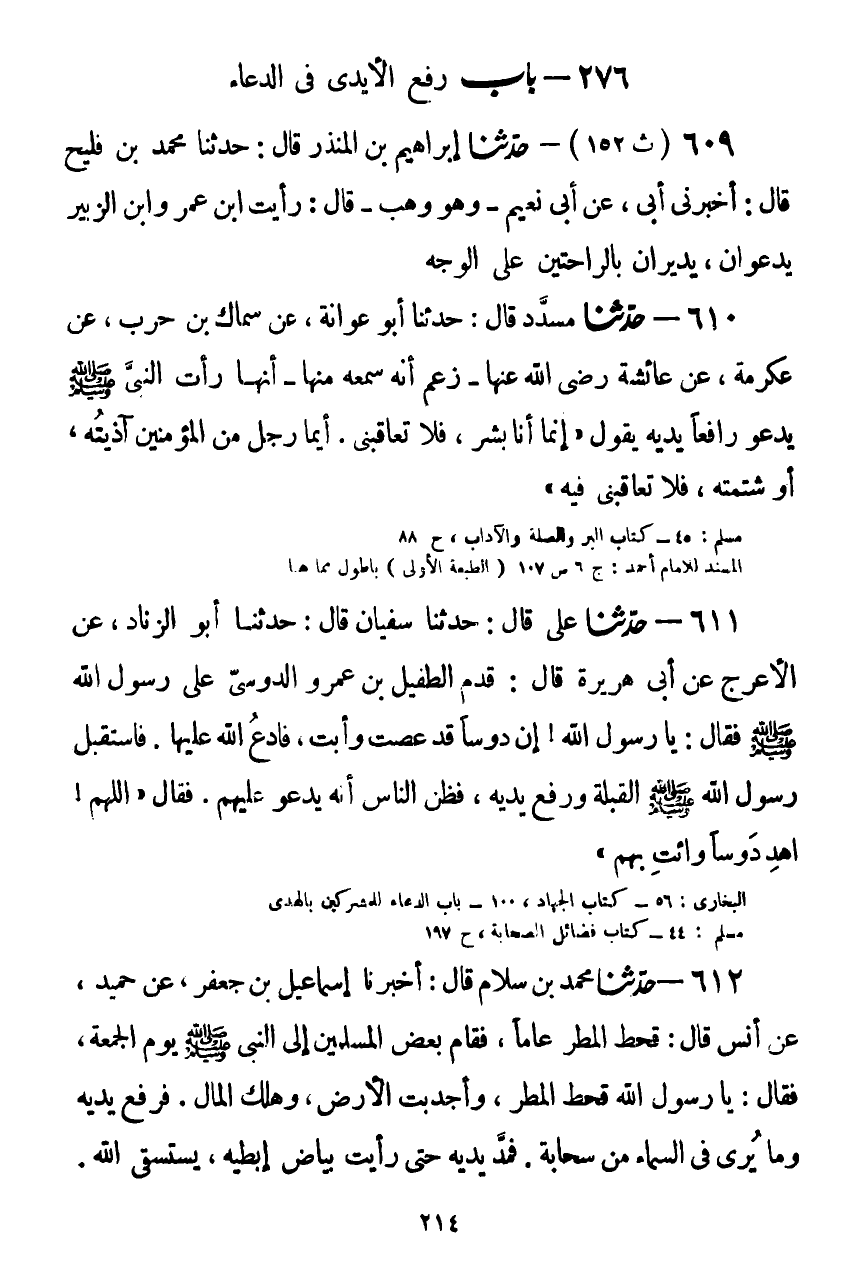 ٢٧٦ – باب رفع الأيدى فى الدعاء
٦٠٩ ( ث ١٥٢ ) – حدّثنا إبراهيم بن المنذر قال : حدثنا محمد بن فليح
قال : أخبرنى أبى ، عن أبى نعيم – وهو وهب – قال : رأيت ابن عمر وابن الزبير
يدعوان ، يديران بالراحتين على الوجه
٦١٠ – حدّثنا مسدَّد قال : حدثنا أبو عوانة ، عن سماك بن حرب ، عن
عكرمة ، عن عائشة رضى الله عنها – زعم أنه سمعه منها – أنهـا رأت النبىَّ ﷺ
يدعو رافعاً يديه يقول « إنما أنا بشر ، فلا تعاقبنى . أيما رجل من المؤمنين آذيتُه ،
أو شتمته ، فلا تعاقبنى فيه »
مسلم : ٤٥ – كتاب البر والصلة والآداب ، ح ٨٨
المسند للامام أحمد : ج ٦ ص ١٠٧ ( الطبعة الأولى ) باطول مما هنا
٦١١ – حدّثنا على قال : حدثنا سفيان قال : حدثنـا أبو الزناد ، عن
الأعرج عن أبى هريرة قال : قدم الطفيل بن عمرو الدوسىّ على رسول الله
ﷺ فقال : يا رسول الله ! إن دوساً قد عصت وأبت ، فادعُ الله عليها . فاستقبل
رسول الله ﷺ القبلة ورفع يديه ، فظن الناس أنه يدعو عليهم . فقال « اللهم !
اهدِ دَوساً وائتِ بهم »
البخارى : ٥٦ – كتاب الجهاد ، ١٠٠ – باب الدعاء للمشركين بالهدى
مسلم : ٤٤ – كتاب فضائل الصحابة ، ح ١٩٧
٦١٢ – حدّثنا محمد بن سلام قال : أخبرنا إسماعيل بن جعفر ، عن حميد ،
عن أنس قال : قحط المطر عاماً ، فقام بعض المسلمين إلى النبى ﷺ يوم الجمعة ،
فقال : يا رسول الله قحط المطر ، وأجدبت الأرض ، وهلك المال . فرفع يديه
وما يُرى فى السماء من سحابة . فمدَّ يديه حتى رأيت بياض إبطيه ، يستسقى الله .
٢١٤